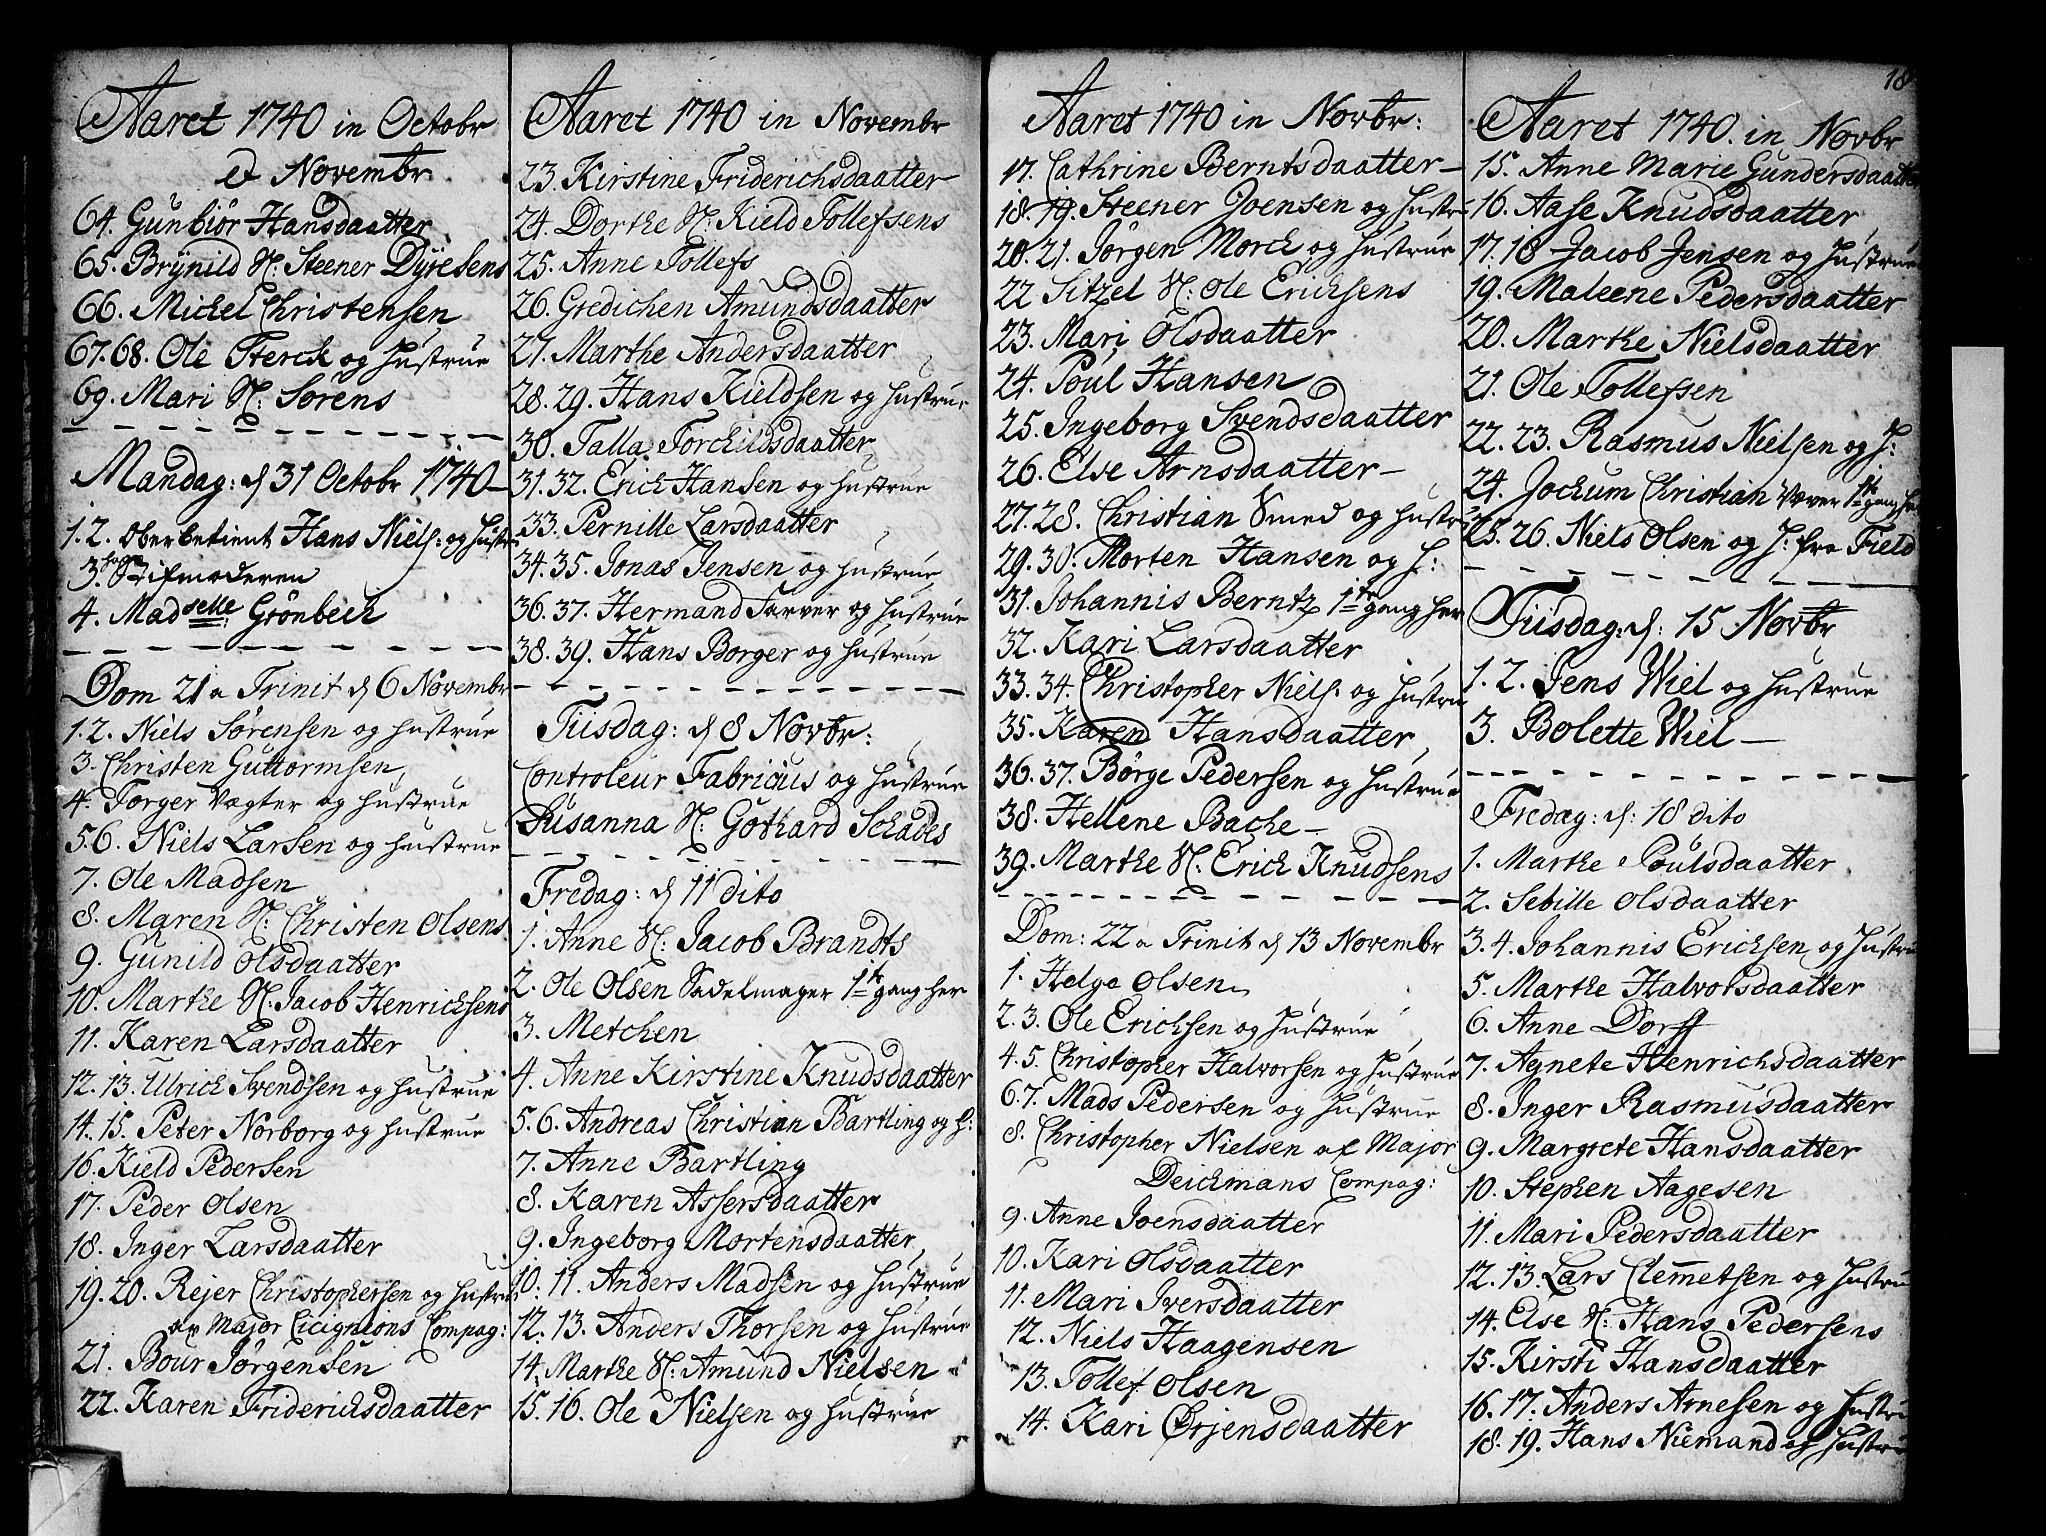 Aaret 1740 in Octobr
& Novembr
64. Gunbiör Hansdaatter
65. Brÿnild N: Steener Dÿresens
66. Michel Christensen
67. 68. Ole Sterck og Hustrue
69. Mari N: Sörens
Mandag: d 31 Octobr 1740
1. 2. Oberbetient Hans Niels: og Hustr
3. Stifmoderen
4. Madselle: Grönbech
Dom 21 a Trinit d 6 Novembr
1. 2. Niels Sörensen og Hustrue
3. Christen Guttormsen
4. Torger Vægter og Hustrue
5 6. Niels Larsen og Hustrue
7. Ole Madsen
8. Maren N: Christen Olsens
9. Gunild Olsdaatter
10. Marthe N: Jacob Henrichsens
11. Karen Larsdaatter
12. 13. Ulrich Svendsen og Hustrue
14. 15. Peter Norborg og Hustrue
16. Kield Pedersen
17. Peder Olsen
18. Inger Larsdaatter
19. 20. Rejer Christophersen og Hustrue
af Major Cicignions Compag:
21. Bour Jörgensen
22. Karen Friderichsdaatter
Aaret 1740 in Novembr
23. Kirstine Friderichsdaatter
24. Dorthe N: Kield Tollefsens
25. Anne Tollefs
26. Gredichen Amundsdaatter
27. Marthe Andersdaatter
28. 29. Hans Kieldsen og Hustrue
30. Talla Torchildsdaatter
31. 32. Erich Hansen og Hustrue
33. Pernille Larsdaatter
34. 35. Jonas Jensen og Hustrue
36. 37. Hermand Farver og Hustrue
38. 39. Hans Borger og Hustrue
Tiisdag: d 8 Novbr:
Controleur Fabricius og Hustrue
Susanna N: Gothard Schades
Fredag: d 11 dito
1. Anne N: Jacob Brandts
2. Ole Olsen Sadelmager 1te gang her
3. Metchen
4. Anne Kirstine Knudsdaatter
5. 6. Andreas Christian Bartling og H:
7. Anne Bartling
8. Karen Assersdaatter
9. Ingeborg Mortensdaatter
10. 11. Anders Madsen og Hustrue
12. 13. Anders Thorsen og Hustrue
14. Marthe N: Amund Nielsen
15. 16. Ole Nielsen og Hustrue
Aaret 1740 in Novbr:
17. Cathrine Berntsdaatter
18. 19. Steener Joensen og Hustr
20. 21. Jörgen Morck og Hustrue
22 Sitzel N: Ole Ericksens
23. Mari Olsdaatter
24. Poul Hansen
25. Ingeborg Svendsdaatter
26. Elve Arnsdaatter
27. 28. Christian Smed og Hustr
29. 30. Morten Hansen og H:
31. Johannis Berntz 1te gang her
32. Kari Larsdaatter
33. 34. Christopher Niels: og Hustru
35. Karen Hansdaatter
36. 37. Börge Pedersen og Hustrue
38. Hellene Bache
39. Marthe N: Erich Knudsens
Dom: 22 a Trinit d 13 Novembr
1. Helge Olsen
2. 3. Ole Erichsen og Hustrue
4. 5. Christopher Halvorsen og Hustrue
6. 7. Mads Pedersen og Hustrue
8. Christopher Nielsen af Major
Deichmans Compag:
9. Anne Joensdaatter
10. Kari Olsdaatter
11. Mari Iversdaatter
12. Niels Haagensen
13. Tollef Olsen
14. Kari Ørjensdaatter
18
Aaret 1740. in Novbr
15. Anne Marie Gundersdaatter
16. Aase Knudsdaatter
17. 18 Jacob Jensen og Hustrue
19. Maleene Pedersdaatter
20. Marthe Nielsdaatter
21. Ole Tollefsen
22. 23. Rasmus Nielsen og H:
24. Jochum Christian Væver 1te gang he
25. 26. Niels Olsen og H: fra Field
Tiisdag: d: 15 Novbr
1. 2. Jens Wiel og Hustrue
3. Bolette Wiel
Fredag: d: 18 dito
1. Marthe Poulsdaatter
2. Sebille Olsdaatter
3. 4. Johannis Ericksen og Hustru
5. Marthe Halvorsdaatter
6. Anne Dorff
7. Agnete Henrichsdaatter
8. Inger Rasmusdaatter
9. Margrete Hansdaatter
10. Stephen Aagesen
11. Mari Pedersdaatter
12. 13. Lars Clemmetsen og Hustru
14. Else N: Hans Pedersens
15. Kirsti Hansdaatter
16. 17. Anders Arnesen og Hustru
18. 19. Hans Niemand og Hustru